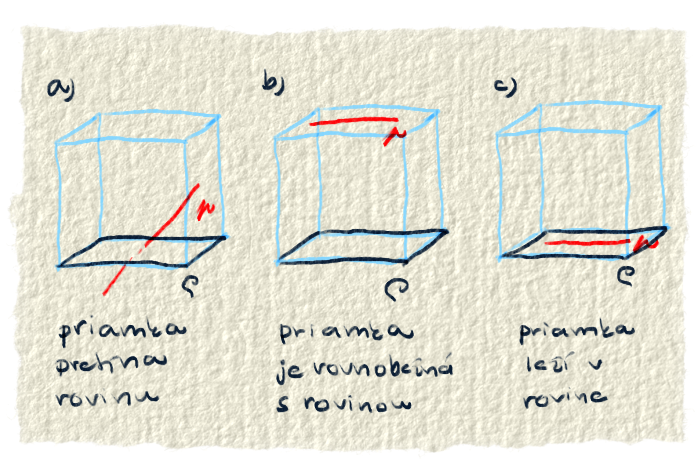 a)
p
ρ
priamka
pretína
rovinu
b)
p
ρ
priamka
je rovnobežná
s rovinou
c)
p
ρ
priamka
leží v
rovine